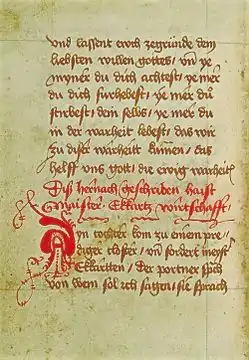 vnd lassent ewch zegrúnde dem
liebsten willen gottes / vn̄ ye
mynner du dich achtest / ye mer
du dich fúrhebest / ye mer du
stirbest / dem selbs / ye mer du
in der warheit lebest / das wir
zu diser warheitt kumen / das
helff vns gott / die ewig warheit
Diß hernach geschriben haist
maister Eckartz wirtschafft
Ayn tochter kom zu einem pre¬
diger closter / vn̄ fordert meyst̄
Eckartten / der portner sp̄ch
von wem sol ich sagen / sie sprach